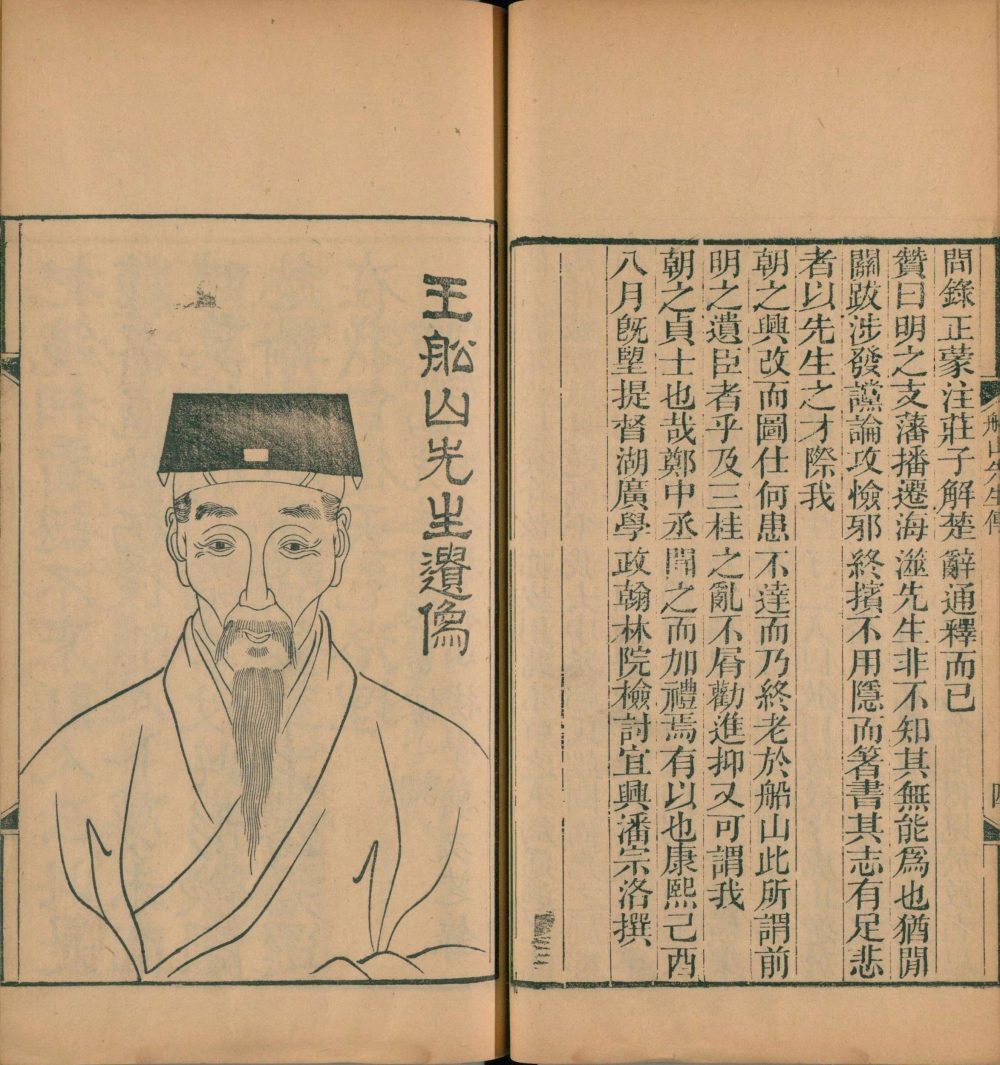 船山先生傳
四
問錄正蒙注莊子解楚辭通釋而已
贊曰明之支藩播遷海澨先生非不知其無能爲也猶閒
關跋涉發讜論攻憸邪終擯不用隱而箸書其志有足悲
者以先生之才際我
朝之興改而圖仕何患不達而乃終老於船山此所謂前
明之遺臣者乎及三桂之亂不屑勸進抑又可謂我
朝之貞士也哉鄭中丞聞之而加禮焉有以也康熙己酉
八月旣朢提督湖廣學政翰林院檢討宜興潘宗洛撰
王舩山先生遺像